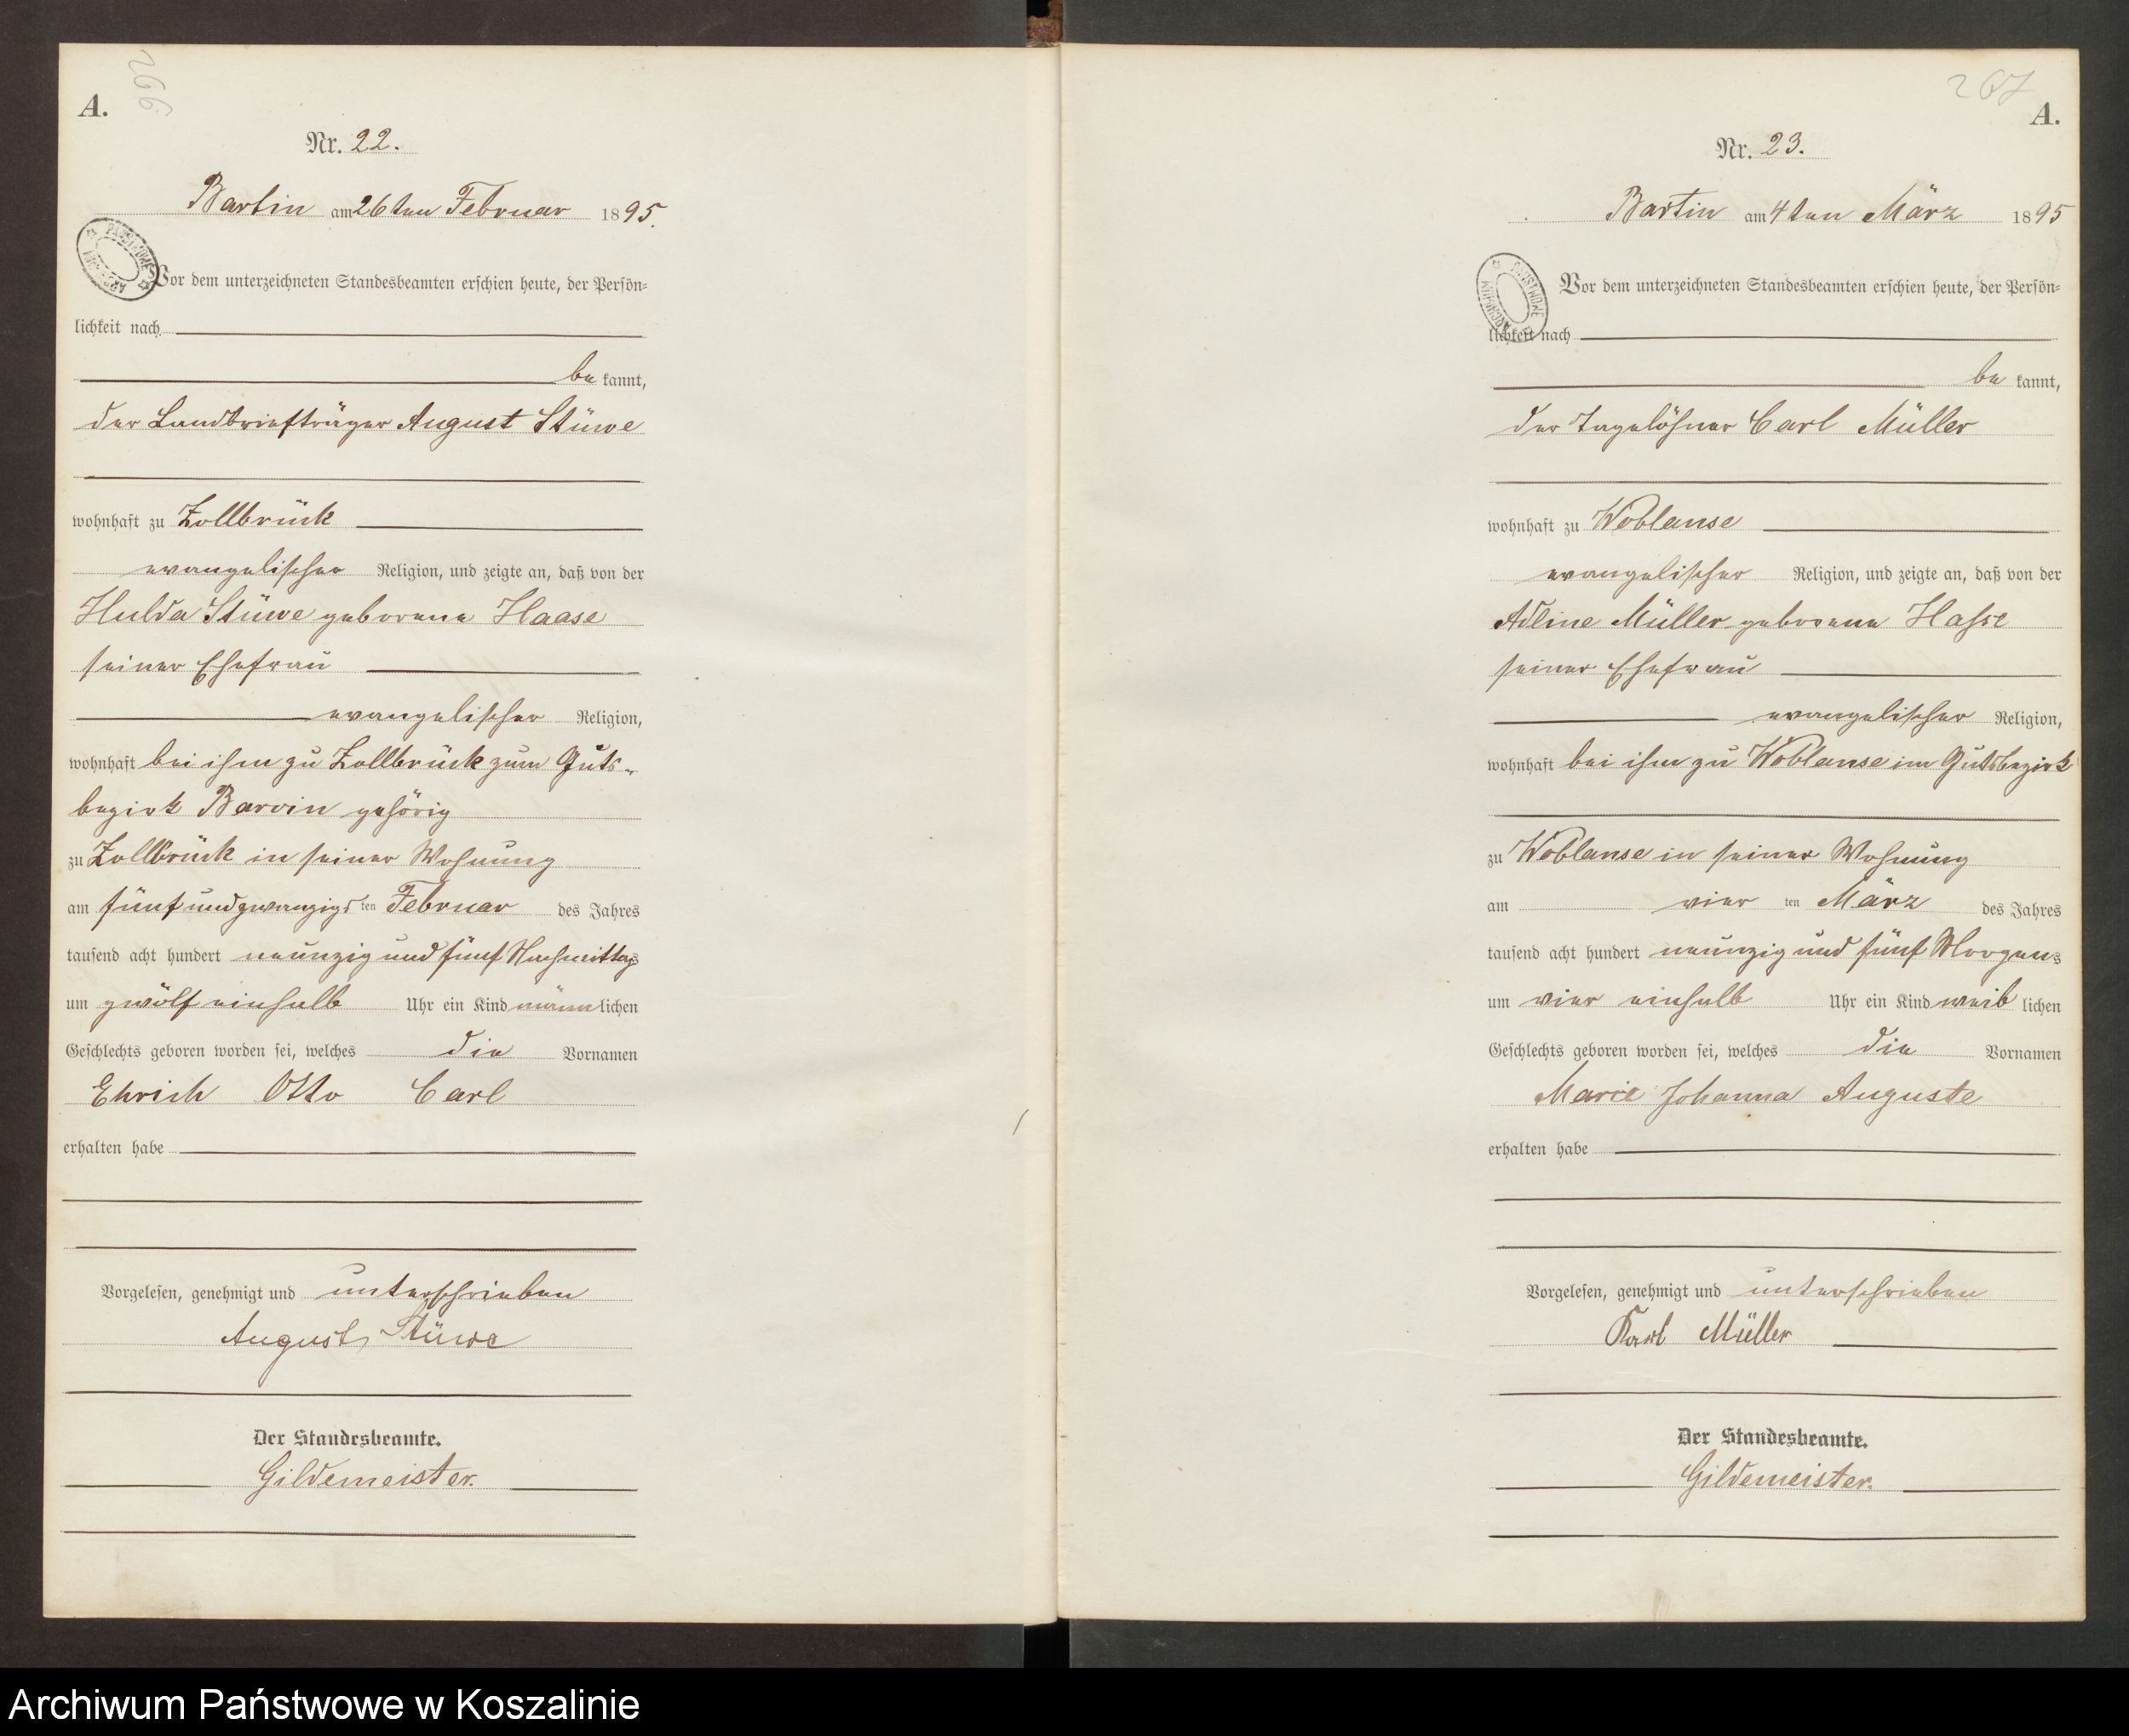 266
A.
Nr. 22.
Bartin am 26ten Februar 1895.
Vor dem unterzeichneten Standesbeamten erschien heute, der Persön=
lichkeit nach
be kannt,
der Landbriefträger August Stüwe
wohnhaft zu Zollbrück
evangelischer Religion, und zeigte an, daß von der
Hulda Stüwe geborene Haase
seiner Ehefrau
evangelischer Religion,
wohnhaft bei ihm zu Zollbrück zum Guts-
bezirk Barvin gehörig
zu Zollbrück in seiner Wohnung
am fünfundzwanzigsten Februar des Jahres
tausend acht hundert neunzig und fünf Nachmittags
um zwölf einhalb Uhr ein Kind männlichen
Geschlechts geboren worden sei, welches die Vornamen
Ehrich Otto Carl
erhalten habe
Vorgelesen, genehmigt und unterschrieben
August Stüwe
Der Standesbeamte.
Gildemeister.
267
A.
Nr. 23.
Bartin am 4ten März 1895
Vor dem unterzeichneten Standesbeamten erschien heute, der Persön=
lichkeit nach
be kannt,
der Tagelöhner Carl Müller
wohnhaft zu Woblanse
evangelischer Religion, und zeigte an, daß von der
Adline Müller geborene Hasse
seiner Ehefrau
evangelischer Religion,
wohnhaft bei ihm zu Woblanse im Gutsbezirk
zu Woblanse in seiner Wohnung
am vier ten März des Jahres
tausend acht hundert neunzig und fünf Morgens
um vier einhalb Uhr ein Kind weib lichen
Geschlechts geboren worden sei, welches die Vornamen
Marie Johanna Auguste
erhalten habe
Vorgelesen, genehmigt und unterschrieben
Karl Müller
Der Standesbeamte.
Gildemeister.
Archiwum Państwowe w Koszalinie